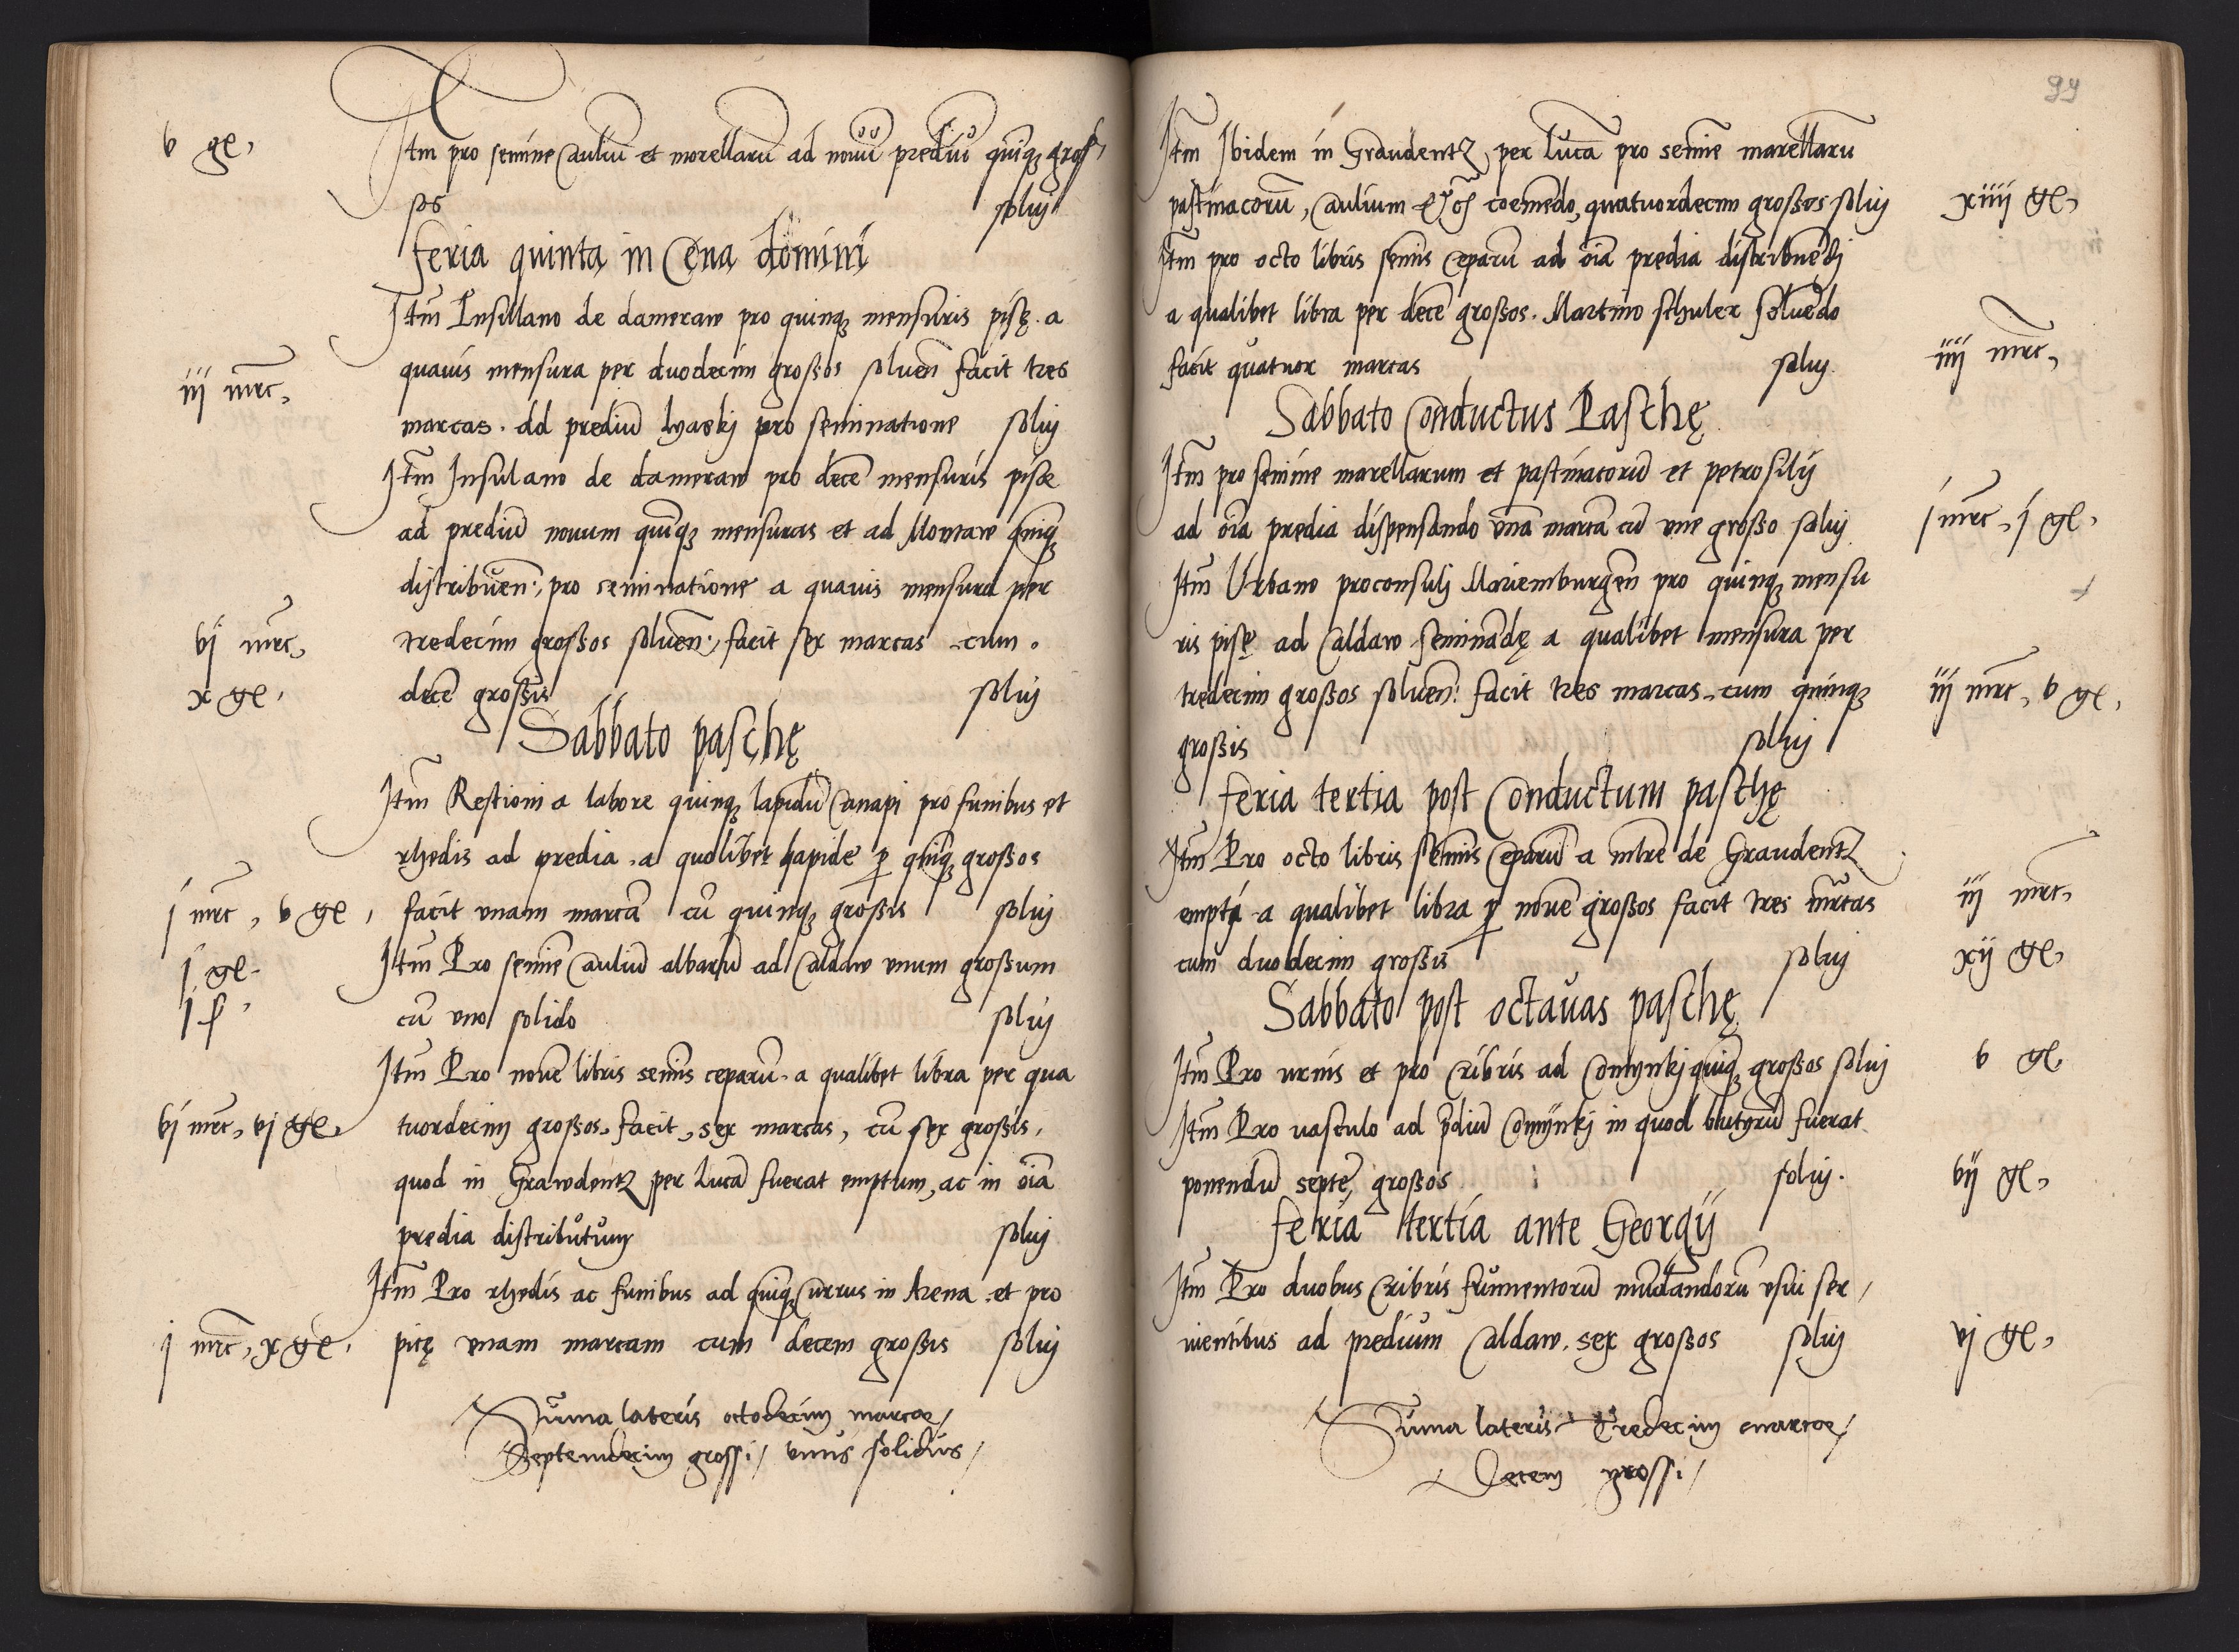 v gl,
Itm pro semine caulium et morellarum ad nouu prediu quinq, gross
sos soluj
feria quinta in Cena domini
Itm Insulano de dameraw pro quinq, mensuris pisę. a
quauis mensura per duodecim grossos soluen facit tres
iij mrc,
marcas. dd prediu lyaskj pro seminatione soluj
Itm Insulano de dameraw pro dece mensuris pisę
ad prediu nouum quinq, mensuras et ad Montaw quinq,
distribuen:, pro seminatione a quauis mensura per
vj mrc,
tredecim grossos soluen:, facit sex marcas cum.
x gl,
dece grossis soluj
Sabbato paschę
Itm Restioni a labore quinq, lapidu canapi pro funibus et
rhedis ad predia. a quolibet lapide p quinq, grossos
j mrc, v gl,
facit vnam marca cu quinq, grossis soluj
j gl
Itm Pro semine cauliu albaru ad Caldaw vnum grossum
j s,
cu vno solido soluj
Itm Pro noue libris seminis ceparu. a qualibet libra per qua
vj mrc, vj gl,
tuordecim grossos. facit, sex marcas, cu sex grossis,
quod in Grawdentz per luca fuerat emptum, ac in oia
predia distributum soluj
Itm Pro rhedis ac funibus ad quinq, currus in Arena. et pro
j mrc, x gl,
picę vnam marcam cum decem grossis soluj
Suma lateris octodecim marcae/
Septemdecim grossi/ vnus solidus/
99
Itm Ibidem in Graudentz, per luca pro semine marellaru
pastinacoru, Caulium coemendo, quatuordecim grossos soluj
xiiij gl,
Itm pro octo libris seminis ceparu ad oia predia distribuedj
a qualibet libra per dece grossos. Martino schuler soluedo
facit quatuor marcas soluj.
iiij mrc,
Sabbato Conductus Paschę
Itm pro semine marellarum et pastinacoru et petrosilij
ad oia predia dispensando vna marca cu vne grosso soluj
j mrc, j gl,
Itm Urbano proconsulj Mariemburgen pro quinq, mensu
ris pisę ad Caldaw seminadę a qualibet mensura per
tredecim grossos soluen: facit tres marcas. cum quinq,
iij mrc, v gl,
grossis soluj
feria tertia post Conductum paschę
Itm Pro octo libris seminis ceparu a mlre de Graudentz
empti a qualibet libra p noue grossos facit tres marcas
iij mrc,
cum duodecim grossis soluj
xij gl,
Sabbato post octauas paschę
Itm Pro vrnis et pro cribris ad Contynkj quinq, grossos soluj
v gl,
Itm Pro vasculo ad pdiu Contynkj in quod butyru fuerat
ponendu septe grossos soluj.
vij gl,
feria tertia ante Georgij
Itm Pro duobus cribris frumentoru mudandoru vsui ser/
uientibus ad predium Caldaw. sex grossos soluj
vj gl,
Suma lateris Tredecim marcae/
Decem grossi/